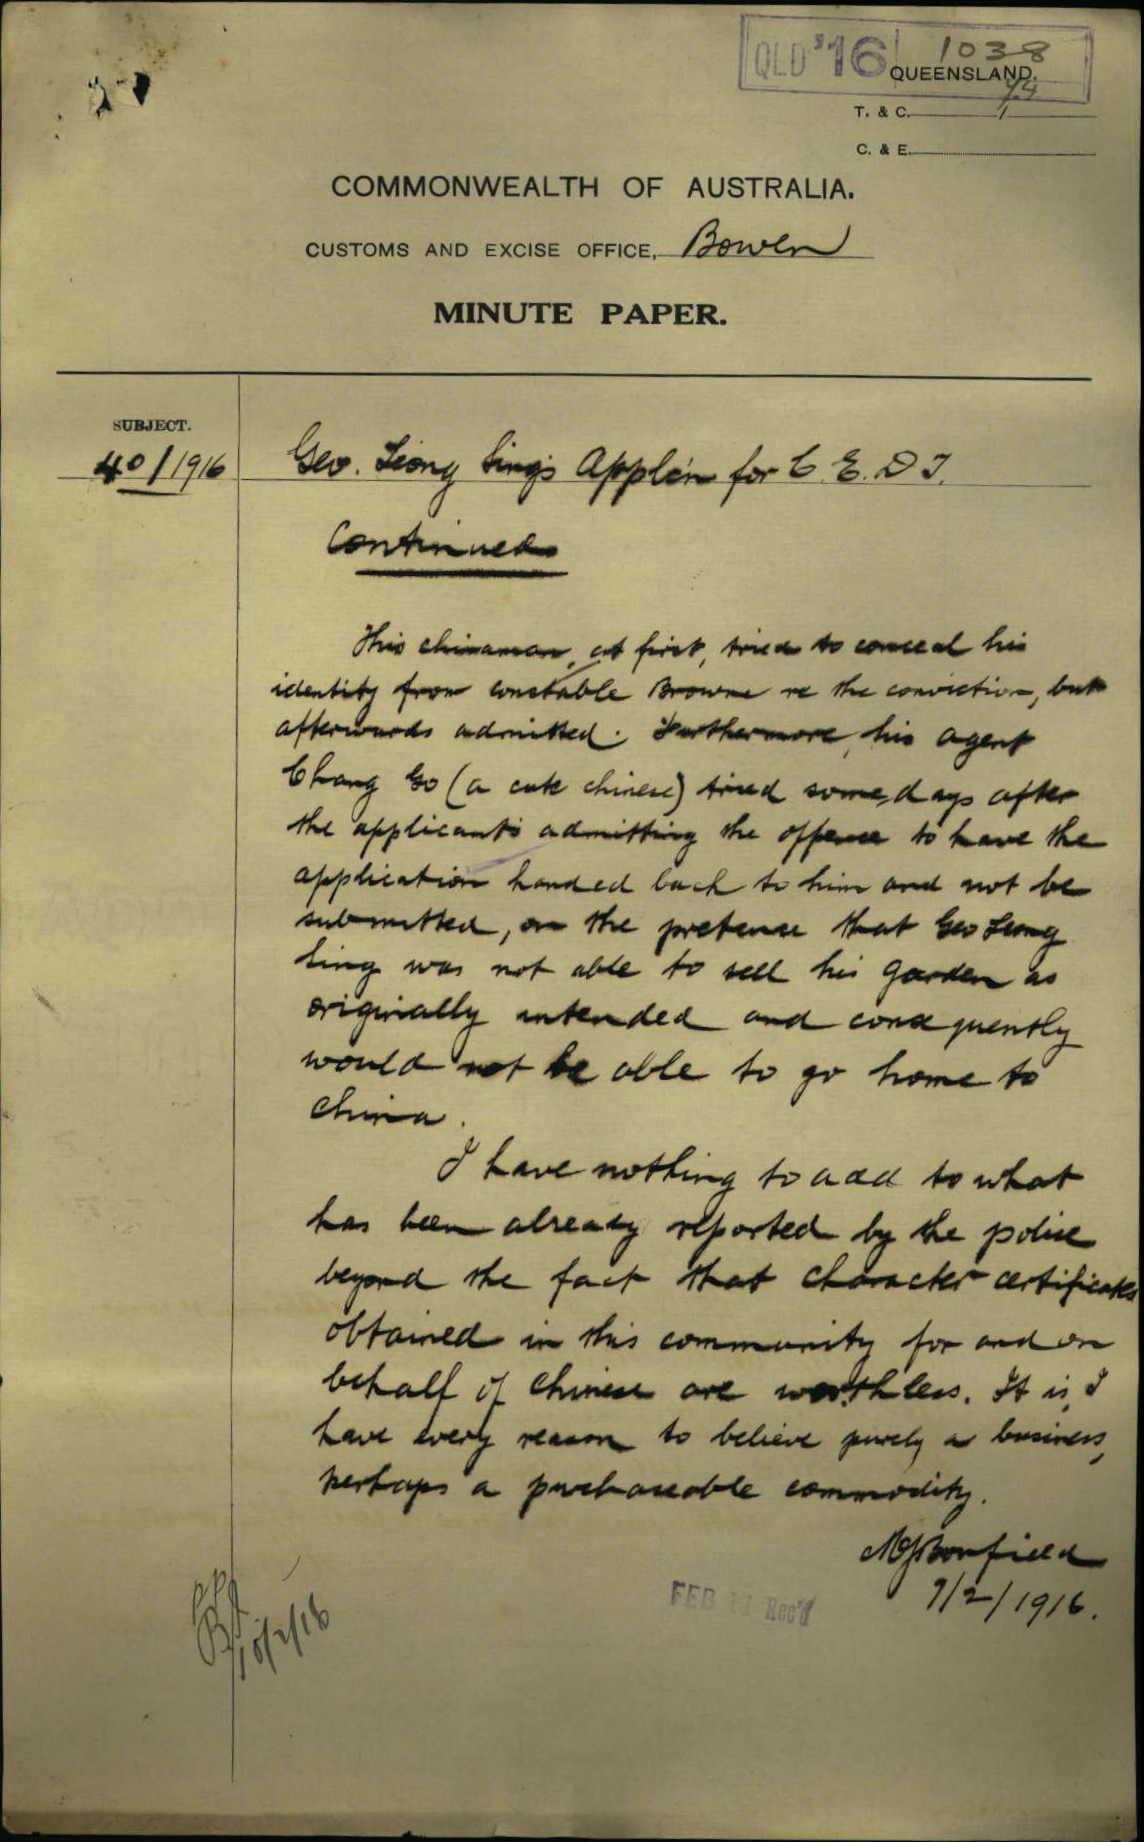 QLD '16 1038
QUEENSLAND.
T. & C.
C. & E.
COMMONWEALTH OF AUSTRALIA.
CUSTOMS AND EXCISE OFFICE, Bowen
MINUTE PAPER.
SUBJECT.
40/1916
Geo. Leong Sing's Applc'n for C. E. D T.
Continued
This chinaman, at first, tried to conceal his
identity from constable Browne re the conviction, but
afterwards admitted. Furthermore, his agent
Chang Go (a cute chinese) tried some days after
the applicant's admitting the offence to have the
application handed back to him and not be
submitted, on the pretence that Geo Leong
Sing was not able to sell his garden as
originally intended and consequently
would not be able to go home to
China.
I have nothing to add to what
has been already reported by the police
beyond the fact that character certificates
obtained in this community for and on
behalf of Chinese are worthless. It is, I
have every reason to believe purely a business,
perhaps a purchaseable commodity.
Bonfield
9/2/1916.
FEB 11 Rec'd
10/2/16